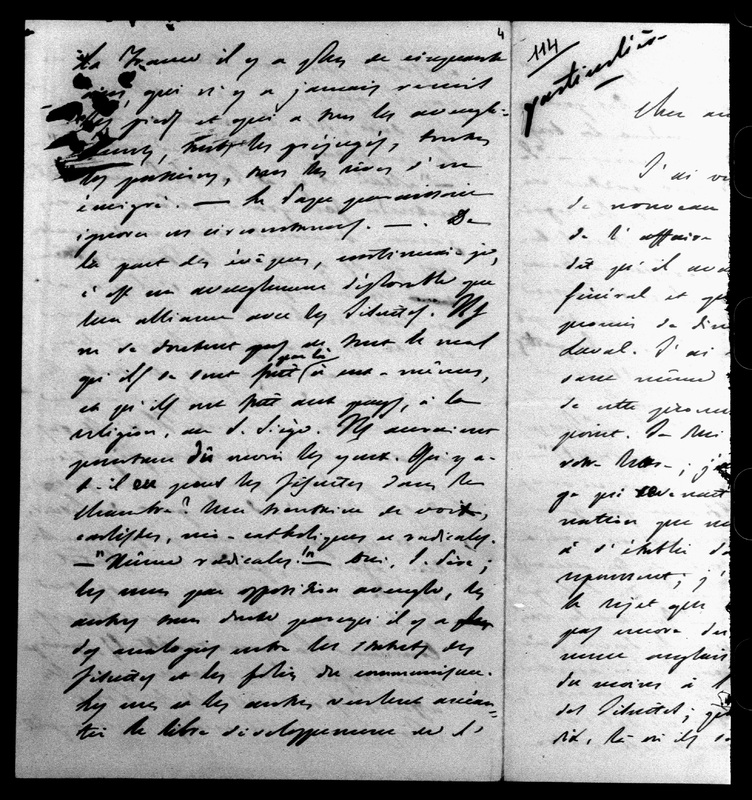 4
la France il y a plus de cinquante
ans, qui n'y a jamais remis
les pieds et qui a tous les aveugle-
ments, tous les préjugés, toutes
les passions, tous les rêves d'un
émigré. — Le Pape
ignorer ces circonstances. — . De
la part des évêques, continuai-je,
c'est un aveuglement déplorable que
leur alliance avec les Jésuites. Ils
ne se doutent pas de tout le mal
qu'ils se sont fait par là à eux-mêmes,
et qu'ils ont fait aux pays, à la
religion, au S. Siège. Ils auraient
pourtant dû ouvrir les yeux. Qui y a-
t-il eu pour les Jésuites dans la
Chambre? Une trentaine de voix,
carlistes, néo-catholiques et radicales.
— "Même radicales!" — Oui, S. Père;
les uns par opposition aveugle, les
autres sans doute parce qu'il y a plus
des analogies entre les statuts des
Jésuites et les folies du communisme.
Les uns et les autres veulent anéan-
tir le libre développement de l'
114
particulière
Cher
J'ai
de nouveau
de l'affaire
dit qu'il
général et
promis de
Laval. J'ai
sans même
de cette
point. Je lui
votre
ce qui
nation que
à s'établir
repoussent; j'
le rejet que
pas encore
même anglais
du moins à
des Jésuites;
dit, là où ils